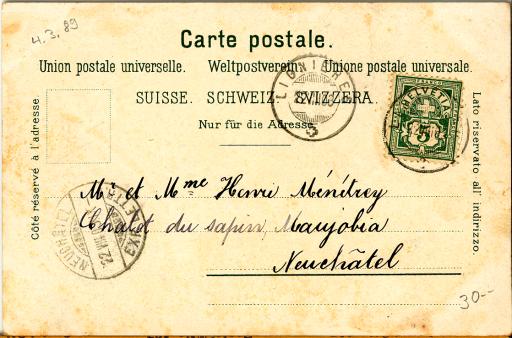 4.3.89
Carte postale.
Union postale universelle. Weltpostverein. Unione postale universale.
SUISSE. SCHWEIZ. SVIZZERA.
Nur für die Adresse.
Côté réservé à l'adresse.
Lato riservato all' indirizzo.
LIGNIÈRES
HELVETIA
5
NEUCHÂTEL
22 VII
Mr et Mme Henri Ménétrey
Chalet du sapin, Maujobia
Neuchâtel
30--